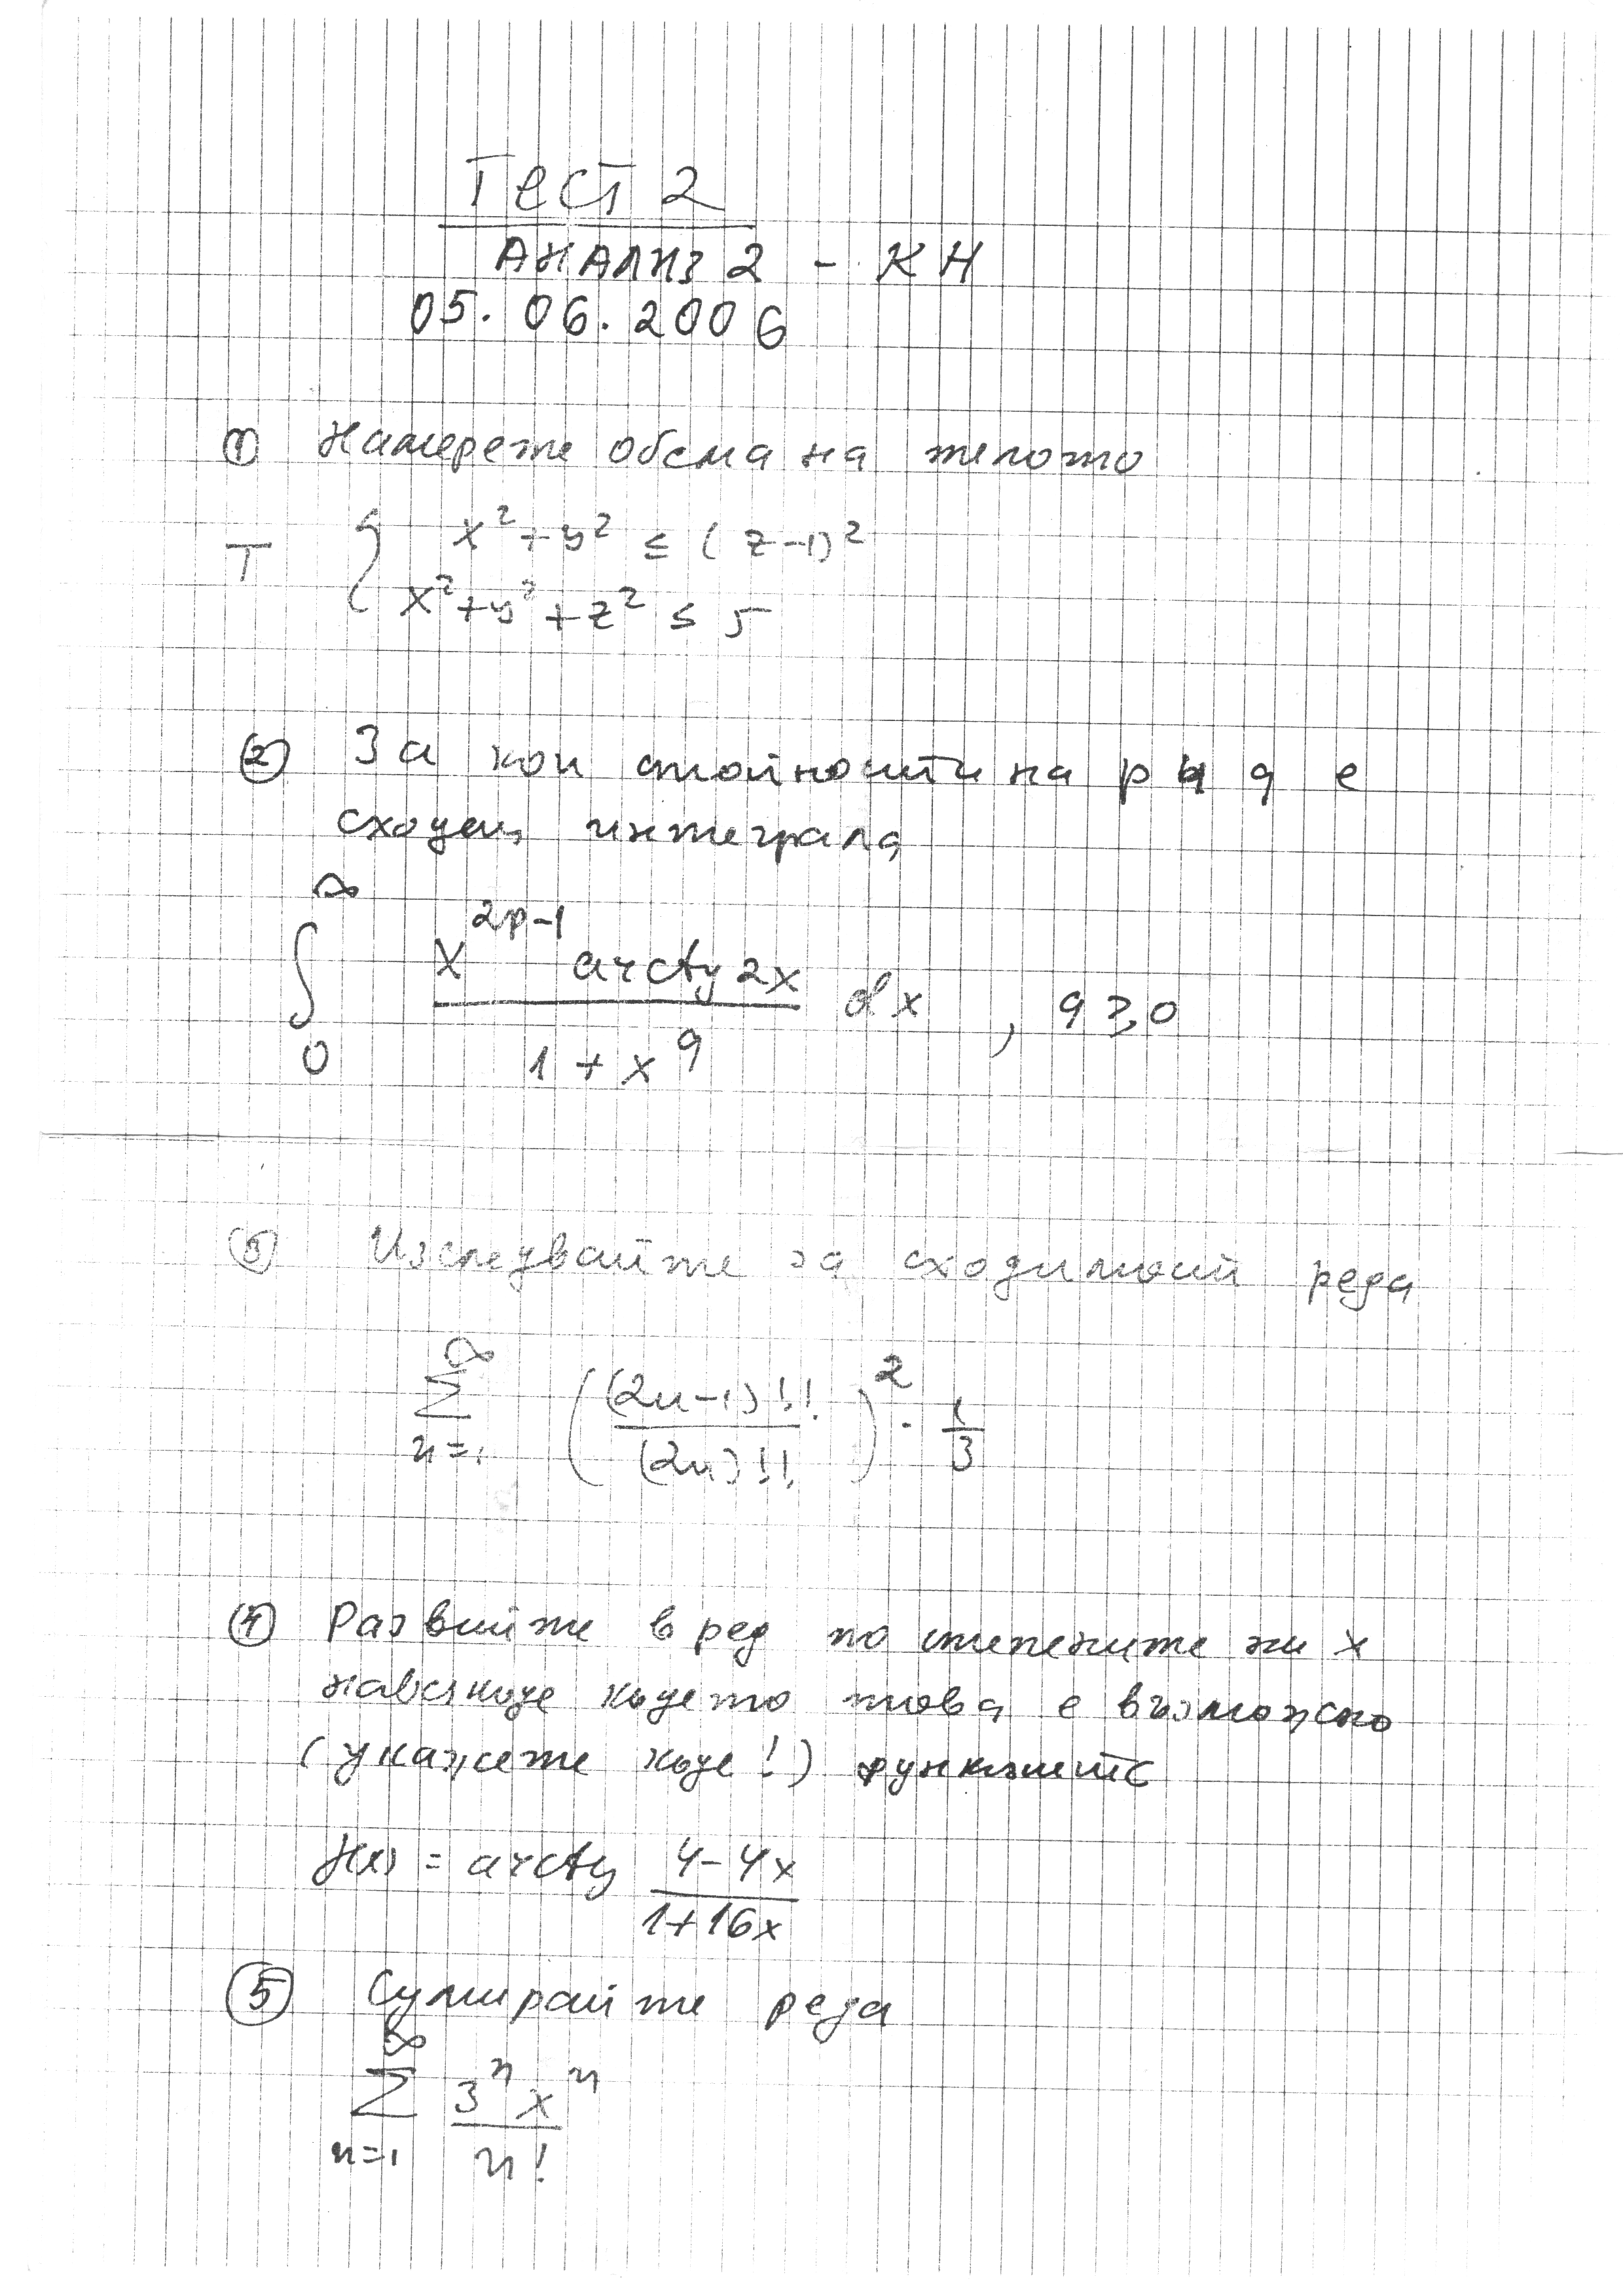 Тест 2
АНАЛИЗ 2 - КН
05.06.2006
① Намерете обема на тялото
T { x² + y² ≤ (z-1)²
x² + y² + z² ≤ 5
② За кои стойности на p и q е
сходящ интеграла
∞
∫ x^{2p-1} arctg 2x / (1 + x^q) dx , q ≥ 0
0
③ Изследвайте за сходимост реда
∞
∑ ((2n-1)!! / (2n)!!)² · 1/3
n=1
④ Развийте в ред по степените на x
навсякъде където това е възможно
(укажете къде!) функциите
f(x) = arctg (4-4x)/(1+16x)
⑤ Сумирайте реда
∞
∑ 3ⁿ xⁿ / n!
n=1